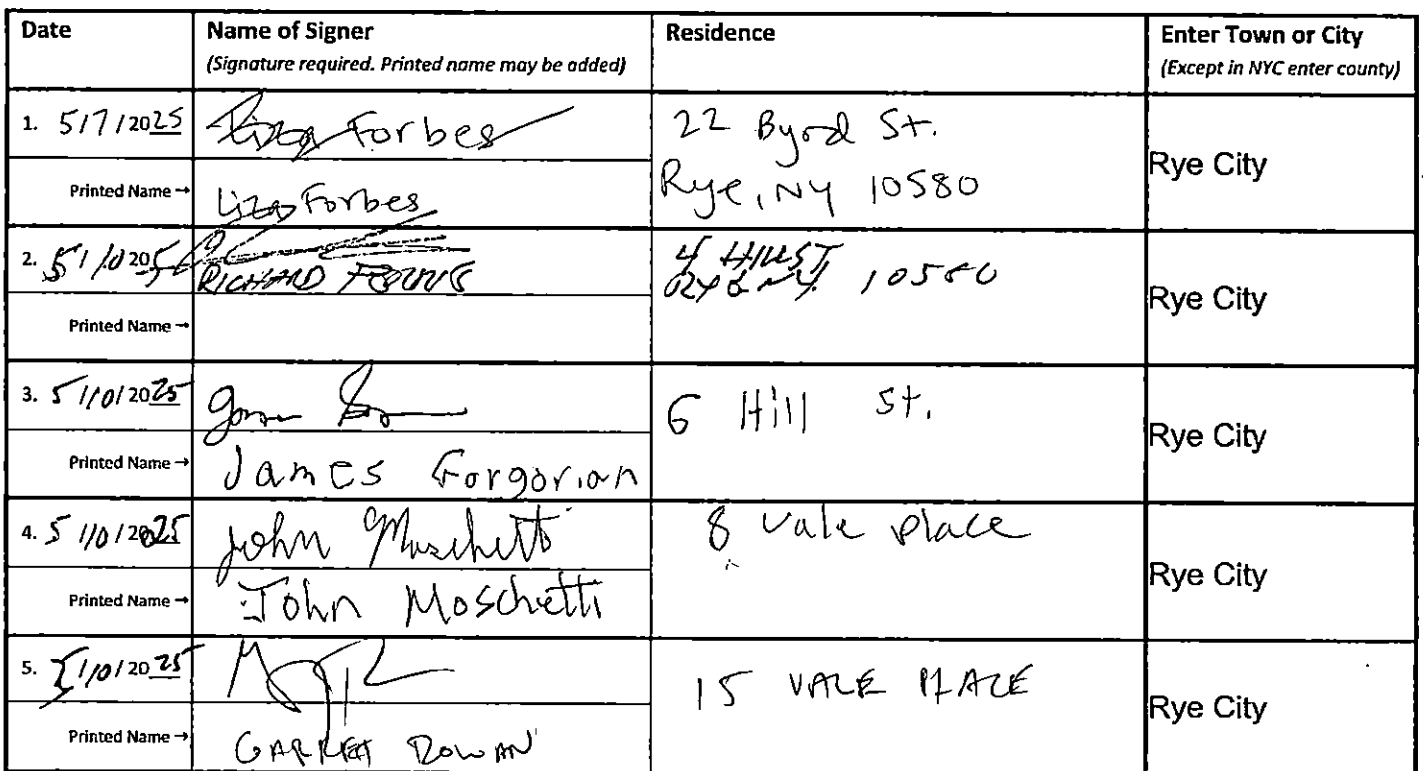 Date Name of Signer Residence Enter Town or City
(Signature required. Printed name may be added) (Except in NYC enter county)
1. 5/7/2025 Liza Forbes 22 Byrd St.
Rye City
Printed Name → Liza Forbes Rye, NY 10580
2. 5/10/20 RICHARD 4 HILL ST
NY. 10580
Rye City
Printed Name →
3. 5/10/2025 6 Hill St.
Rye City
Printed Name → James Gorgorian
4. 5/10/2025 John Moschetti 8 Vale place
Rye City
Printed Name → John Moschetti
5. 5/10/2025 15 VALE PLACE
Rye City
Printed Name → GARRET ROWAN